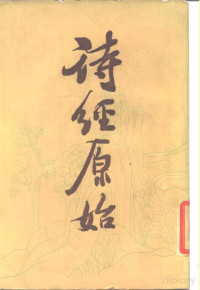 诗经原始